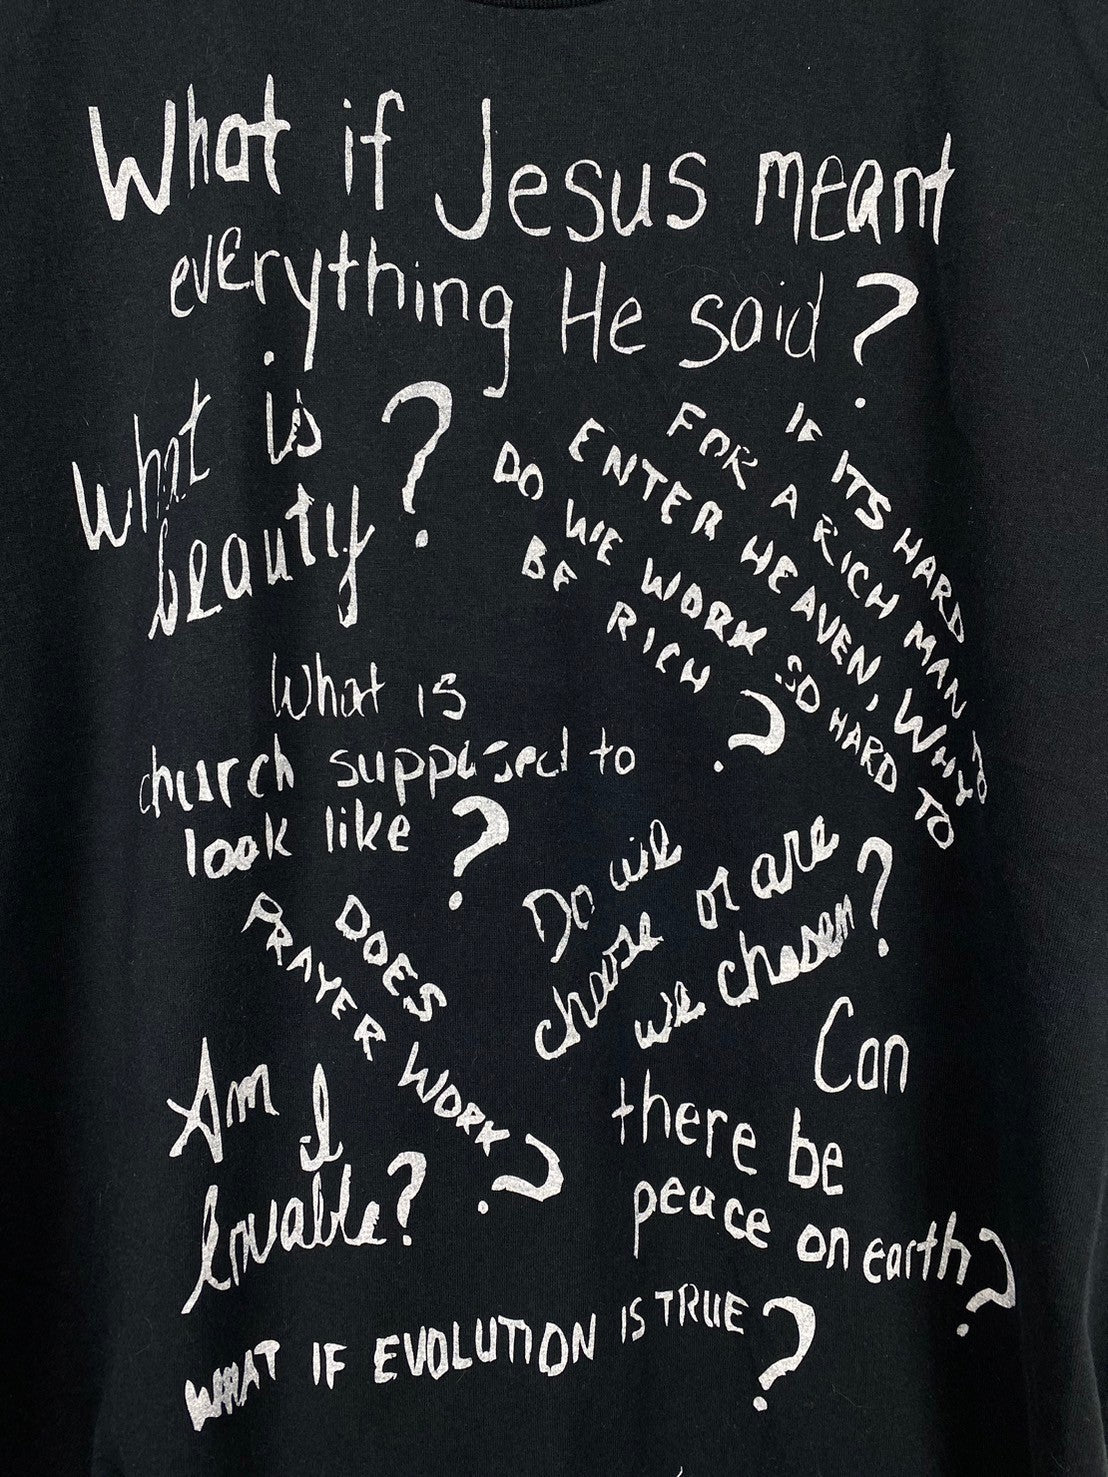 What if Jesus meant
everything He said?
What is
beauty?
IF ITS HARD
FOR A RICH MAN TO
ENTER HEAVEN, WHY
DO WE WORK SO HARD TO
BE RICH?
What is
church supposed to
look like?
Do we
choose or are
we chosen?
DOES
PRAYER WORK?
Am I
lovable?
Can
there be
peace on earth?
WHAT IF EVOLUTION IS TRUE?